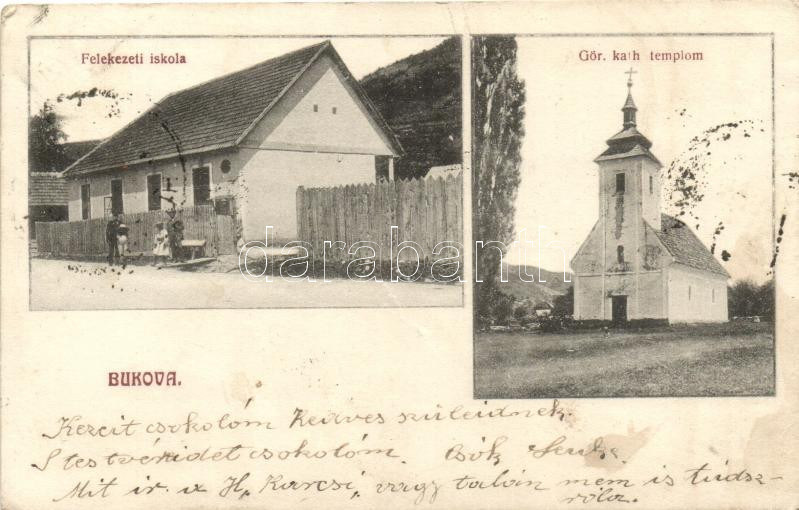 Felekezeti iskola
Gör. kath templom
darabanth
BUKOVA.
Kezeit csokolóm Kedves szüleidnek.
S testvéridet csokolóm. Csók
Mit ir a H, "Karcsi", vagy talán nem is tudsz-
róla.